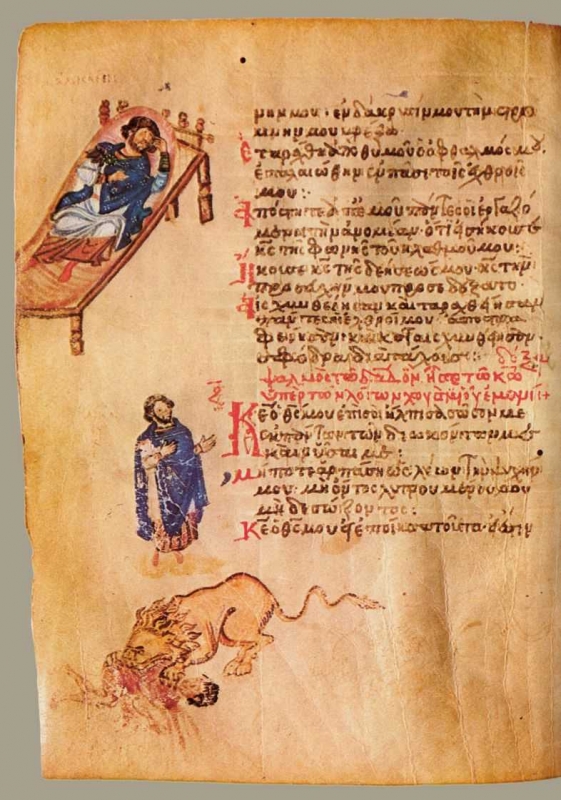 μνην μου· ἐν δάκρυσιν μου τὴν στρω
μνήν μου βρέξω·
ἐταράχθη ἀπὸ θυμοῦ ὁ ὀφθαλμός μου·
ἐπαλαιώθην ἐν πᾶσι τοῖς ἐχθροῖς
μου:
ἀπόστητε ἀπ' ἐμοῦ πάντες οἱ ἐργαζό
μενοι τὴν ἀνομίαν· ὅτι εἰσήκουσε
κς τῆς φωνῆς τοῦ κλαυθμοῦ μου:
ἤκουσε κς τῆς δεήσεώς μου· κς τὴν
προσευχήν μου προσεδέξατο
αἰσχυνθείησαν καὶ ταραχθείησαν
πάντες οἱ ἐχθροί μου·
σφόδρα διὰ τάχους:
ψαλμὸς τῷ δαδ ὃν ᾖσεν τῷ κω
ὑπὲρ τῶν λόγων
Κε ὁ θς μου ἐπὶ σοὶ ἤλπισα σῶσον με
ἐκ πάντων τῶν διωκόντων με
καὶ ῥῦσαί με:
μήποτε ἁρπάσῃ ὡς λέων τὴν ψυχήν
μου· μὴ ὄντος λυτρουμένου
μηδὲ σώζοντος:
Κε ὁ θς μου εἰ ἐποίησα τοῦτο